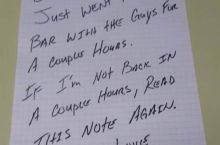 JUST WENT
BAR WITH THE GUYS FOR
A COUPLE HOURS.
IF I'M NOT BACK IN
A COUPLE HOURS, READ
THIS NOTE AGAIN.